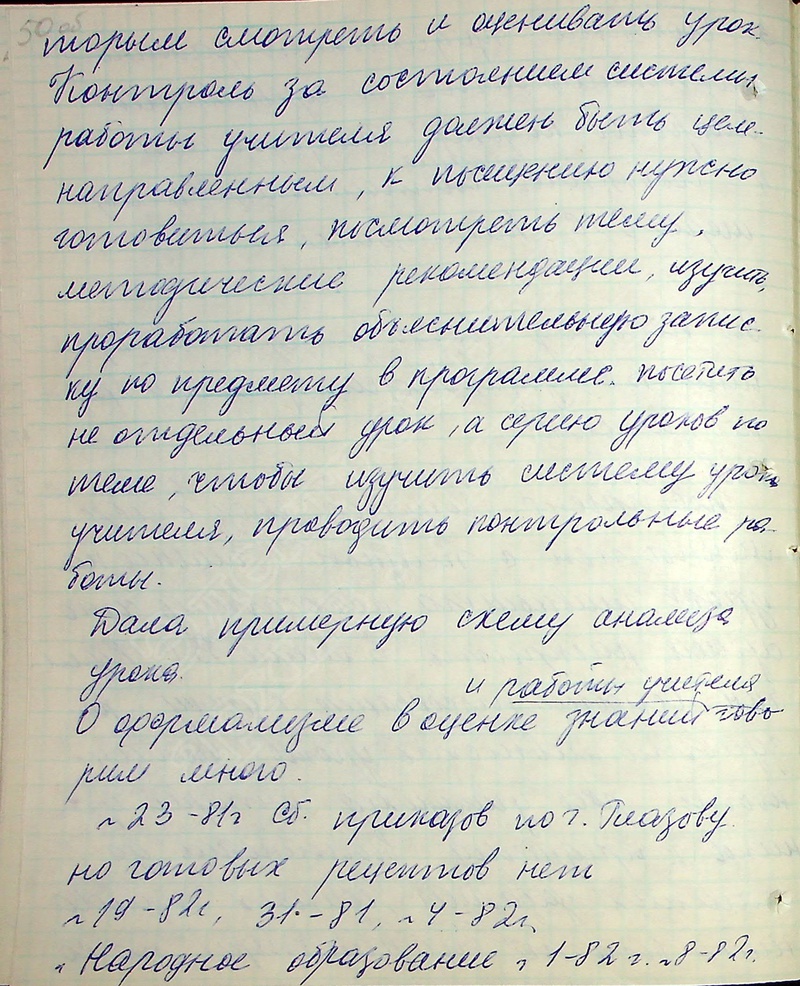 50 об
торым смотреть и оценивать урок.
Контроль за состоянием системы
работы учителя должен быть целе-
направленным, к посещению нужно
готовиться, посмотреть тему,
методические рекомендации, изучить,
проработать объяснительную запис-
ку по предмету в программе. посетить
не отдельный урок, а серию уроков по
теме, чтобы изучить систему урока
учителя, проводить контрольные ра-
боты.
Дала примерную схему анализа
урока.
и работы учителя
О формализме в оценке знаний гово
рим много.
23-81г Сб. приказов по г. Глазову
но готовых рецептов нет
19-82г, 31-81, 4-82г,
Народное образование 1-82 г. 8-82г.